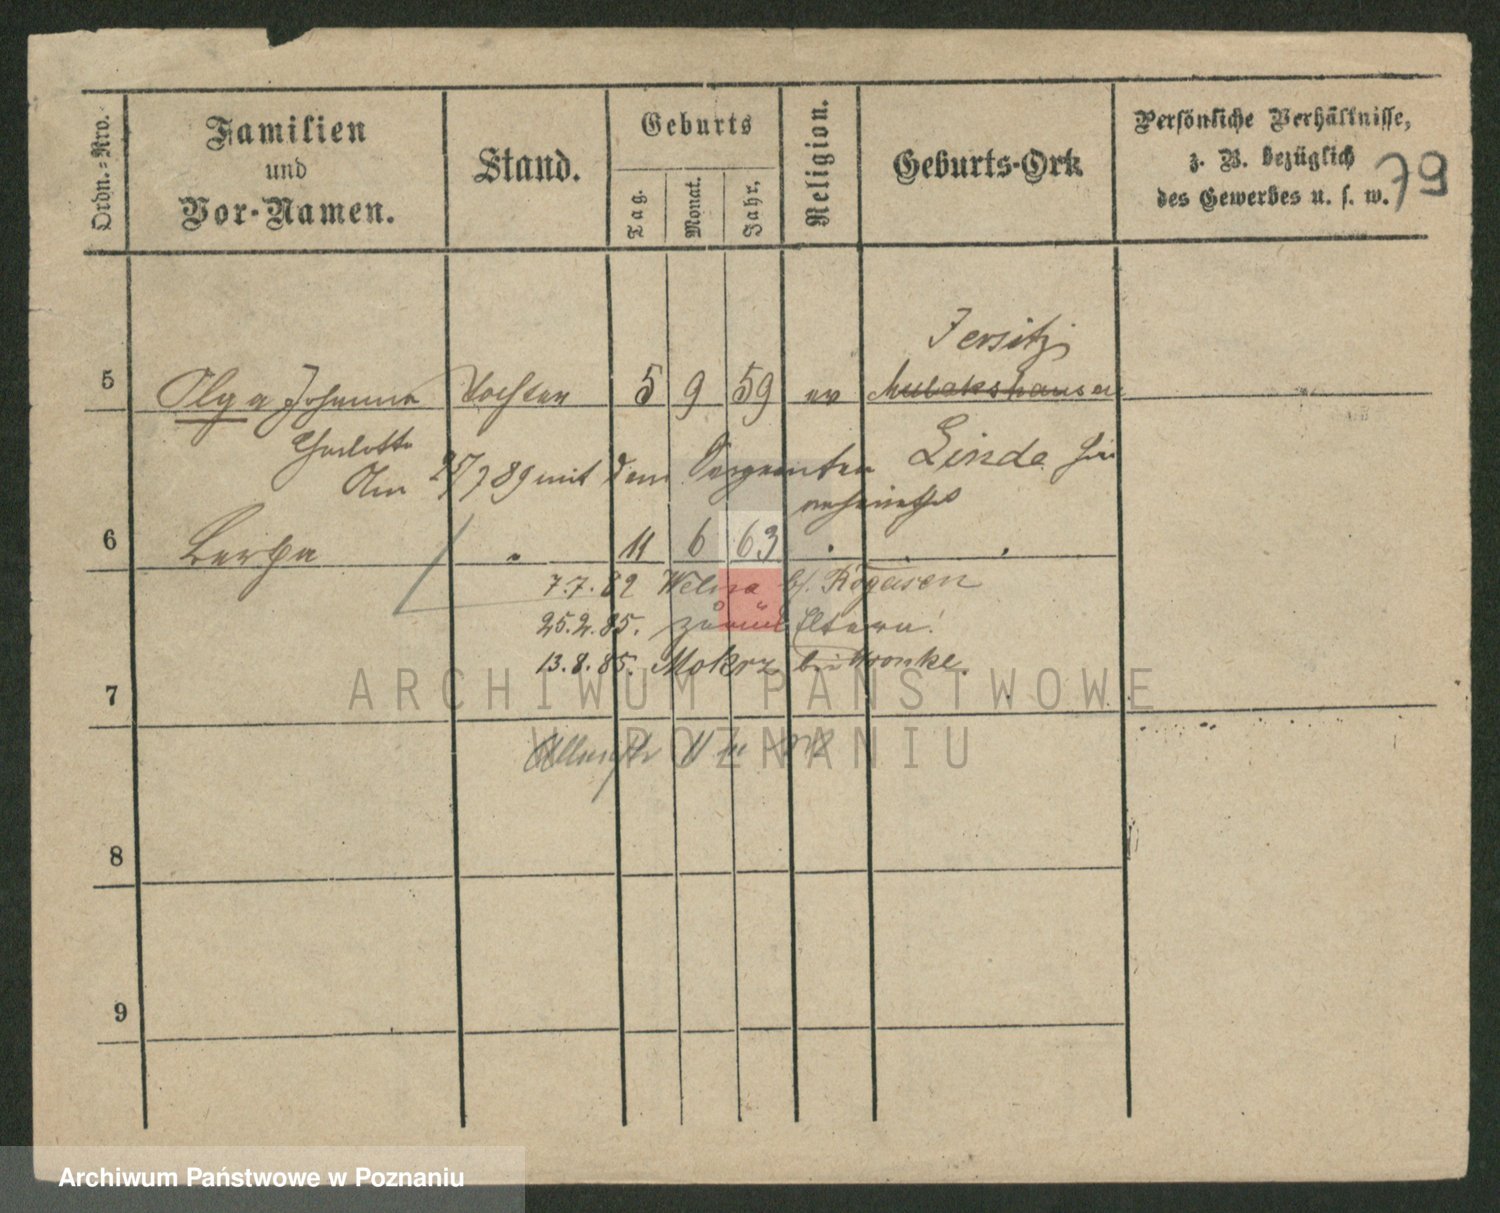 Ordn.-Nro.
Familien
und
Vor-Namen.
Stand.
Geburts
Tag.
Monat.
Jahr.
Religion.
Geburts-Ort
Persönliche Verhältnisse,
z. B. bezüglich
des Gewerbes u. s. w.
79
Jersitz
5 Olga Johanna Tochter 5 9 59 ev Mulakshausen
Charlotte
Am 27/7 89 mit dem Sergeanten Linda
6 Bertha " 11 6 63
7.7.82 Welna b/. Rogasen
25.2.85. zurück Eltern.
13.8.85. Mokrz bei Wronke.
7
8
9
ARCHIWUM PAŃSTWOWE
W POZNANIU
Archiwum Państwowe w Poznaniu